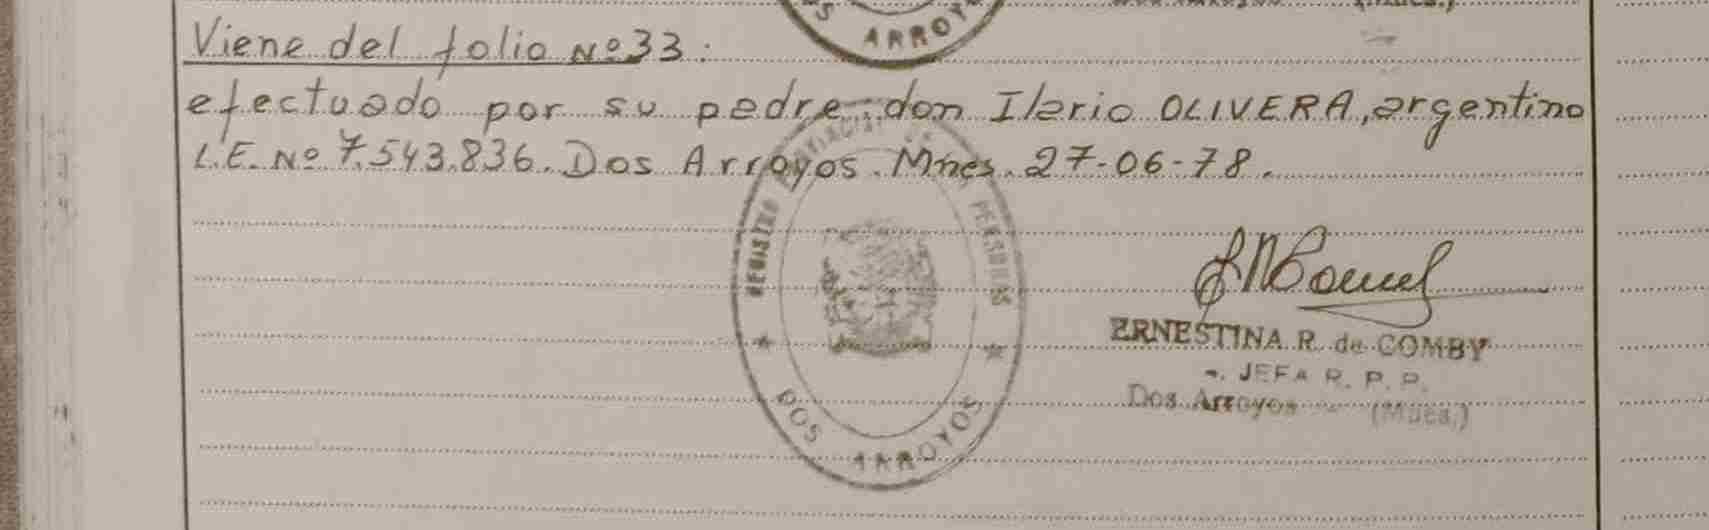 S ARROYO
Viene del folio Nº 33:
efectuado por su padre: don Ilario OLIVERA, argentino
L.E. Nº 7.543.836. Dos Arroyos. Mnes. 27-06-78.
REGISTRO PERSONAS
ERNESTINA R. de COMBY
JEFA R. P. P.
Dos Arroyos - (Mnes.)
DOS ARROYOS